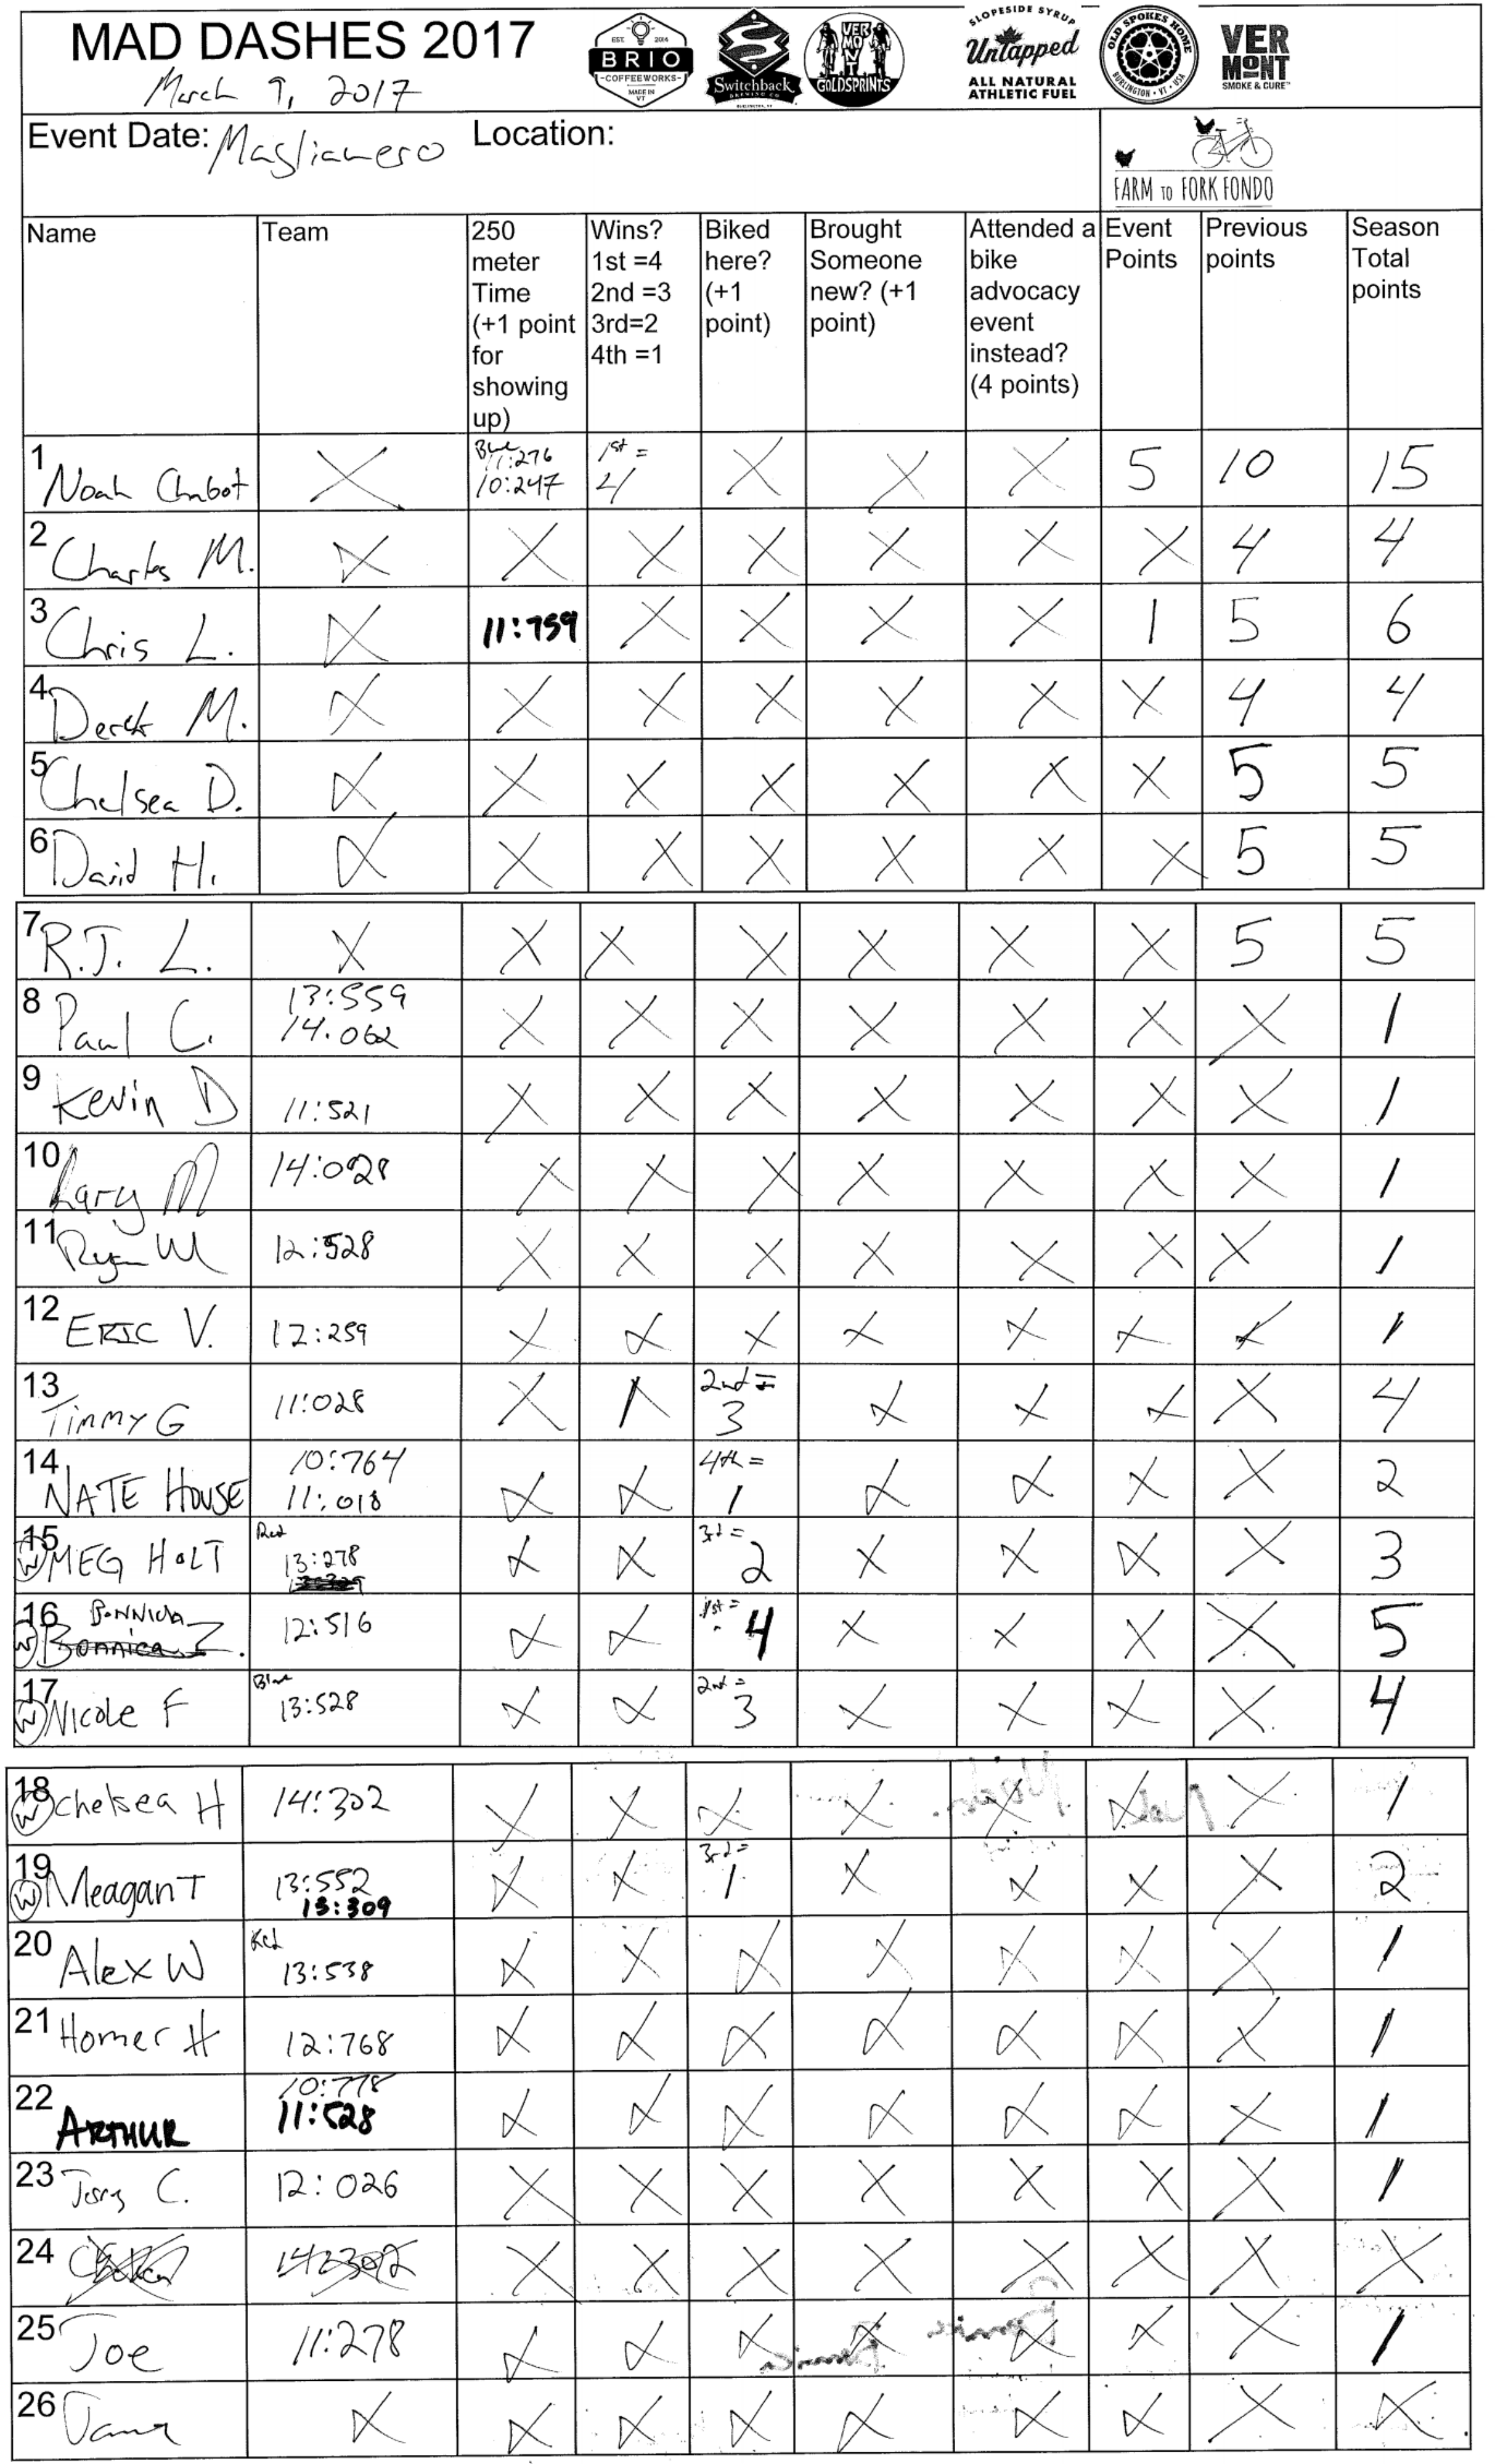 MAD DASHES 2017
March 9, 2017
EST. 2014
BRIO
COFFEEWORKS
MADE IN
VT
Switchback
BREWING CO.
VERMONT
GOLDSPRINTS
SLOPESIDE SYRUP
Untapped
ALL NATURAL
ATHLETIC FUEL
OLD SPOKES HOME
BURLINGTON • VT • USA
VERMONT
SMOKE & CURE
Event Date: Maglianero Location:
FARM TO FORK FONDO
Name Team 250 meter Time (+1 point for showing up) Wins? 1st =4 2nd =3 3rd=2 4th =1 Biked here? (+1 point) Brought Someone new? (+1 point) Attended a bike advocacy event instead? (4 points) Event Points Previous points Season Total points
1 Noah Chabot X Blue 11:276 10:247 1st = 4 X X X 5 10 15
2 Charles M. X X X X X X X 4 4
3 Chris L. X 11:759 X X X X 1 5 6
4 Derek M. X X X X X X X 4 4
5 Chelsea D. X X X X X X X 5 5
6 David H. X X X X X X X 5 5
7 R.J. L. X X X X X X X 5 5
8 Paul C. 13:559 14.062 X X X X X X X 1
9 Kevin D 11:521 X X X X X X X 1
10 Lary M 14:028 X X X X X X X 1
11 Ryan W 12:528 X X X X X X X 1
12 ERIC V. 12:259 X X X X X X X 1
13 Timmy G 11:028 X 2nd = 3 X X X X 4
14 NATE HOUSE 10:764 11:018 X X 4th = 1 X X X X 2
15 W MEG HOLT Red 13:278 X X 3rd = 2 X X X X 3
16 W BONNICA Bonnica Z. 12:516 X X 1st = 4 X X X X 5
17 W Nicole F Blue 13:528 X X 2nd = 3 X X X X 4
18 W Chelsea H 14:302 X X X X X X X 1
19 W Meagan T 13:552 13:309 X X 3rd = 1 X X X X 2
20 Alex W Red 13:538 X X X X X X X 1
21 Homer H 12:768 X X X X X X X 1
22 ARTHUR 10:778 11:528 X X X X X X X 1
23 C. 12:026 X X X X X X X 1
24 14:302 X X X X X X X X
25 Joe 11:278 X X X X X X X 1
26 X X X X X X X X X